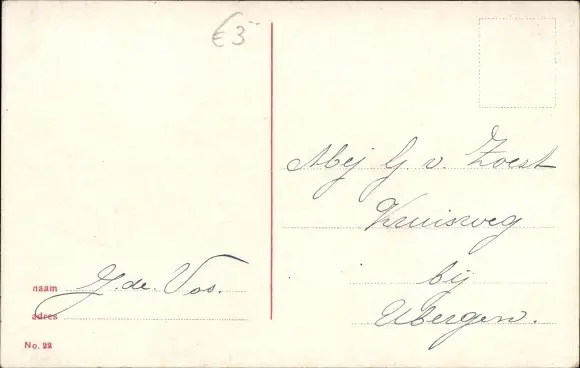 € 3
Mej G. v. Zoest
Kruisweg
bij
Ubergen.
naam G. de. Vos.
adres
No. 22